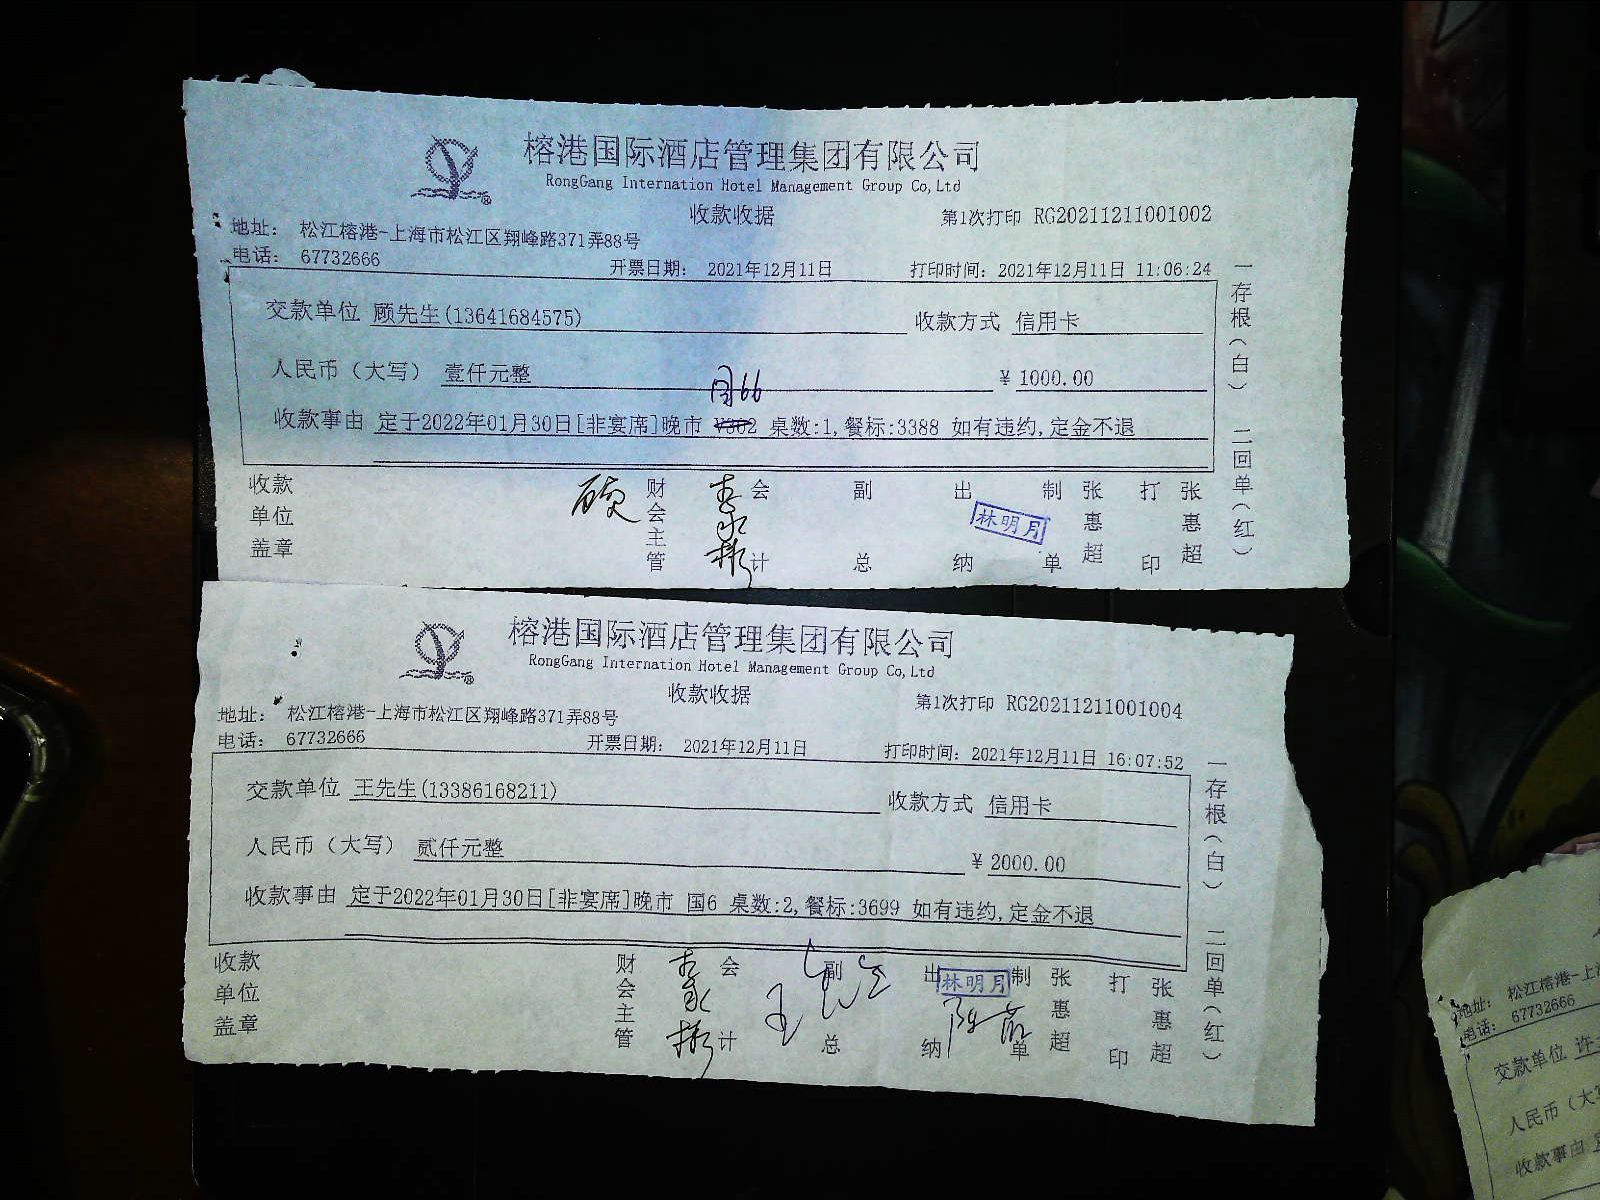 榕港国际酒店管理集团有限公司
RongGang Internation Hotel Management Group Co,Ltd
收款收据
第1次打印 RG20211211001002
地址： 松江榕港-上海市松江区翔峰路371弄88号
电话： 67732666
开票日期： 2021年12月11日
打印时间：2021年12月11日 11:06:24
交款单位 顾先生(13641684575)
收款方式 信用卡
人民币（大写） 壹仟元整
¥ 1000.00
66
收款事由 定于2022年01月30日[非宴席]晚市 V302 桌数:1,餐标:3388 如有违约,定金不退
收款单位盖章
顾
财会主管
李永彬
会计
副总
出纳
林明月
制单
张惠超
打印
张惠超
一存根（白） 二回单（红）
榕港国际酒店管理集团有限公司
RongGang Internation Hotel Management Group Co,Ltd
收款收据
第1次打印 RG20211211001004
地址： 松江榕港-上海市松江区翔峰路371弄88号
电话： 67732666
开票日期： 2021年12月11日
打印时间：2021年12月11日 16:07:52
交款单位 王先生(13386168211)
收款方式 信用卡
人民币（大写） 贰仟元整
¥ 2000.00
收款事由 定于2022年01月30日[非宴席]晚市 国6 桌数:2,餐标:3699 如有违约,定金不退
收款单位盖章
财会主管
李永彬
会计
王
副总
出纳
林明月
制单
张惠超
打印
张惠超
一存根（白） 二回单（红）
地址： 松江榕港-上
电话： 67732666
交款单位 许
人民币（大
收款事由